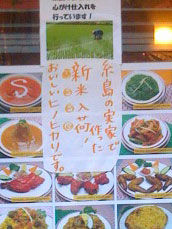 心がけ仕入れを
行っています!
糸島の実家で
作った
新米入荷!
おいしいヒノヒカリです。